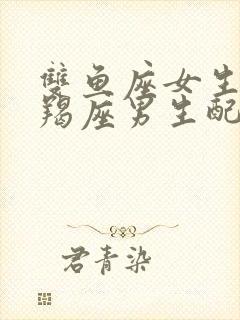 雙魚座女生
羯座男生配
君青染